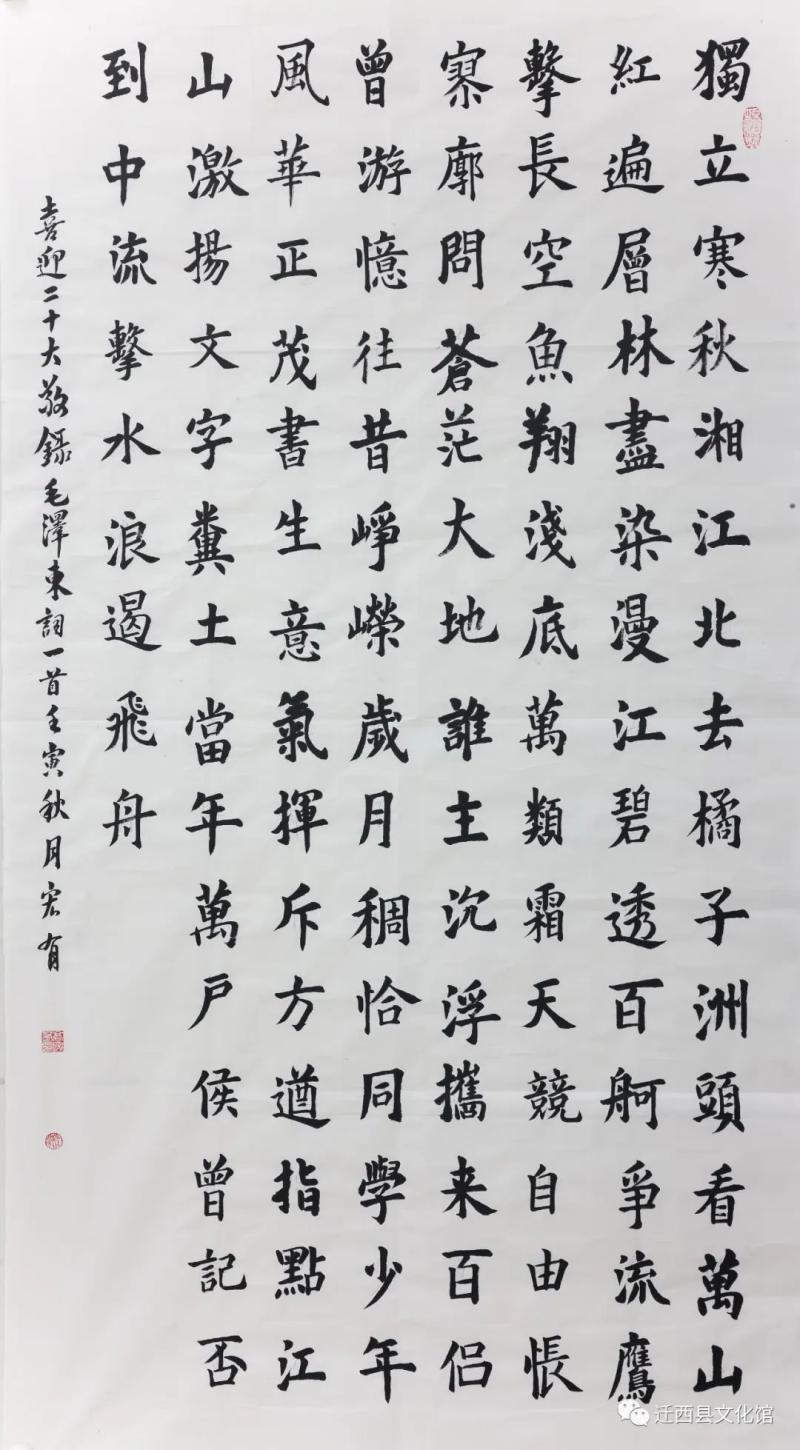 獨立寒秋湘江北去橘子洲頭看萬山
紅遍層林盡染漫江碧透百舸爭流鷹
擊長空魚翔淺底萬類霜天競自由悵
寥廓問蒼茫大地誰主沉浮攜来百侣
曾游憶往昔崢嶸歲月稠恰同學少年
風華正茂書生意氣揮斥方遒指點江
山激揚文字糞土當年萬戶侯曾記否
到中流擊水浪遏飛舟
喜迎二十大敬錄毛澤東詞一首壬寅秋月宏有
迁西县文化馆